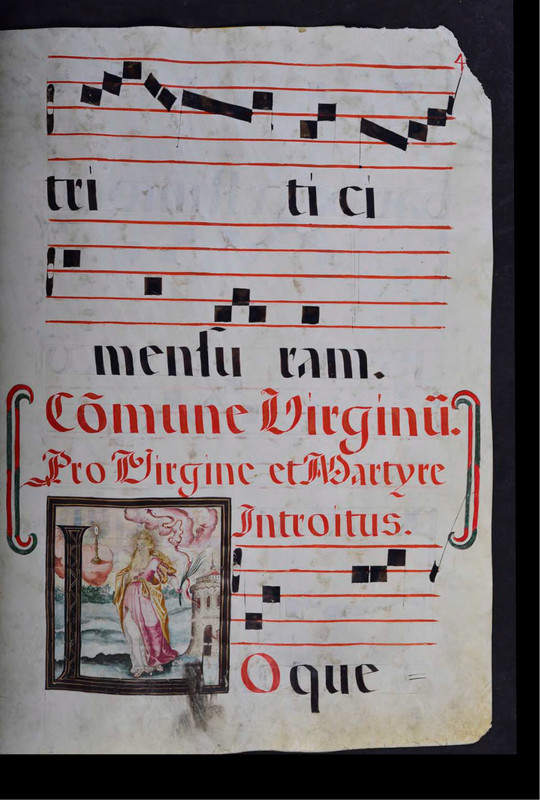 tri ti ci
mensu ram.
Cõmune Virginũ.
Pro Virgine et Martyre
Introitus.
LOque =